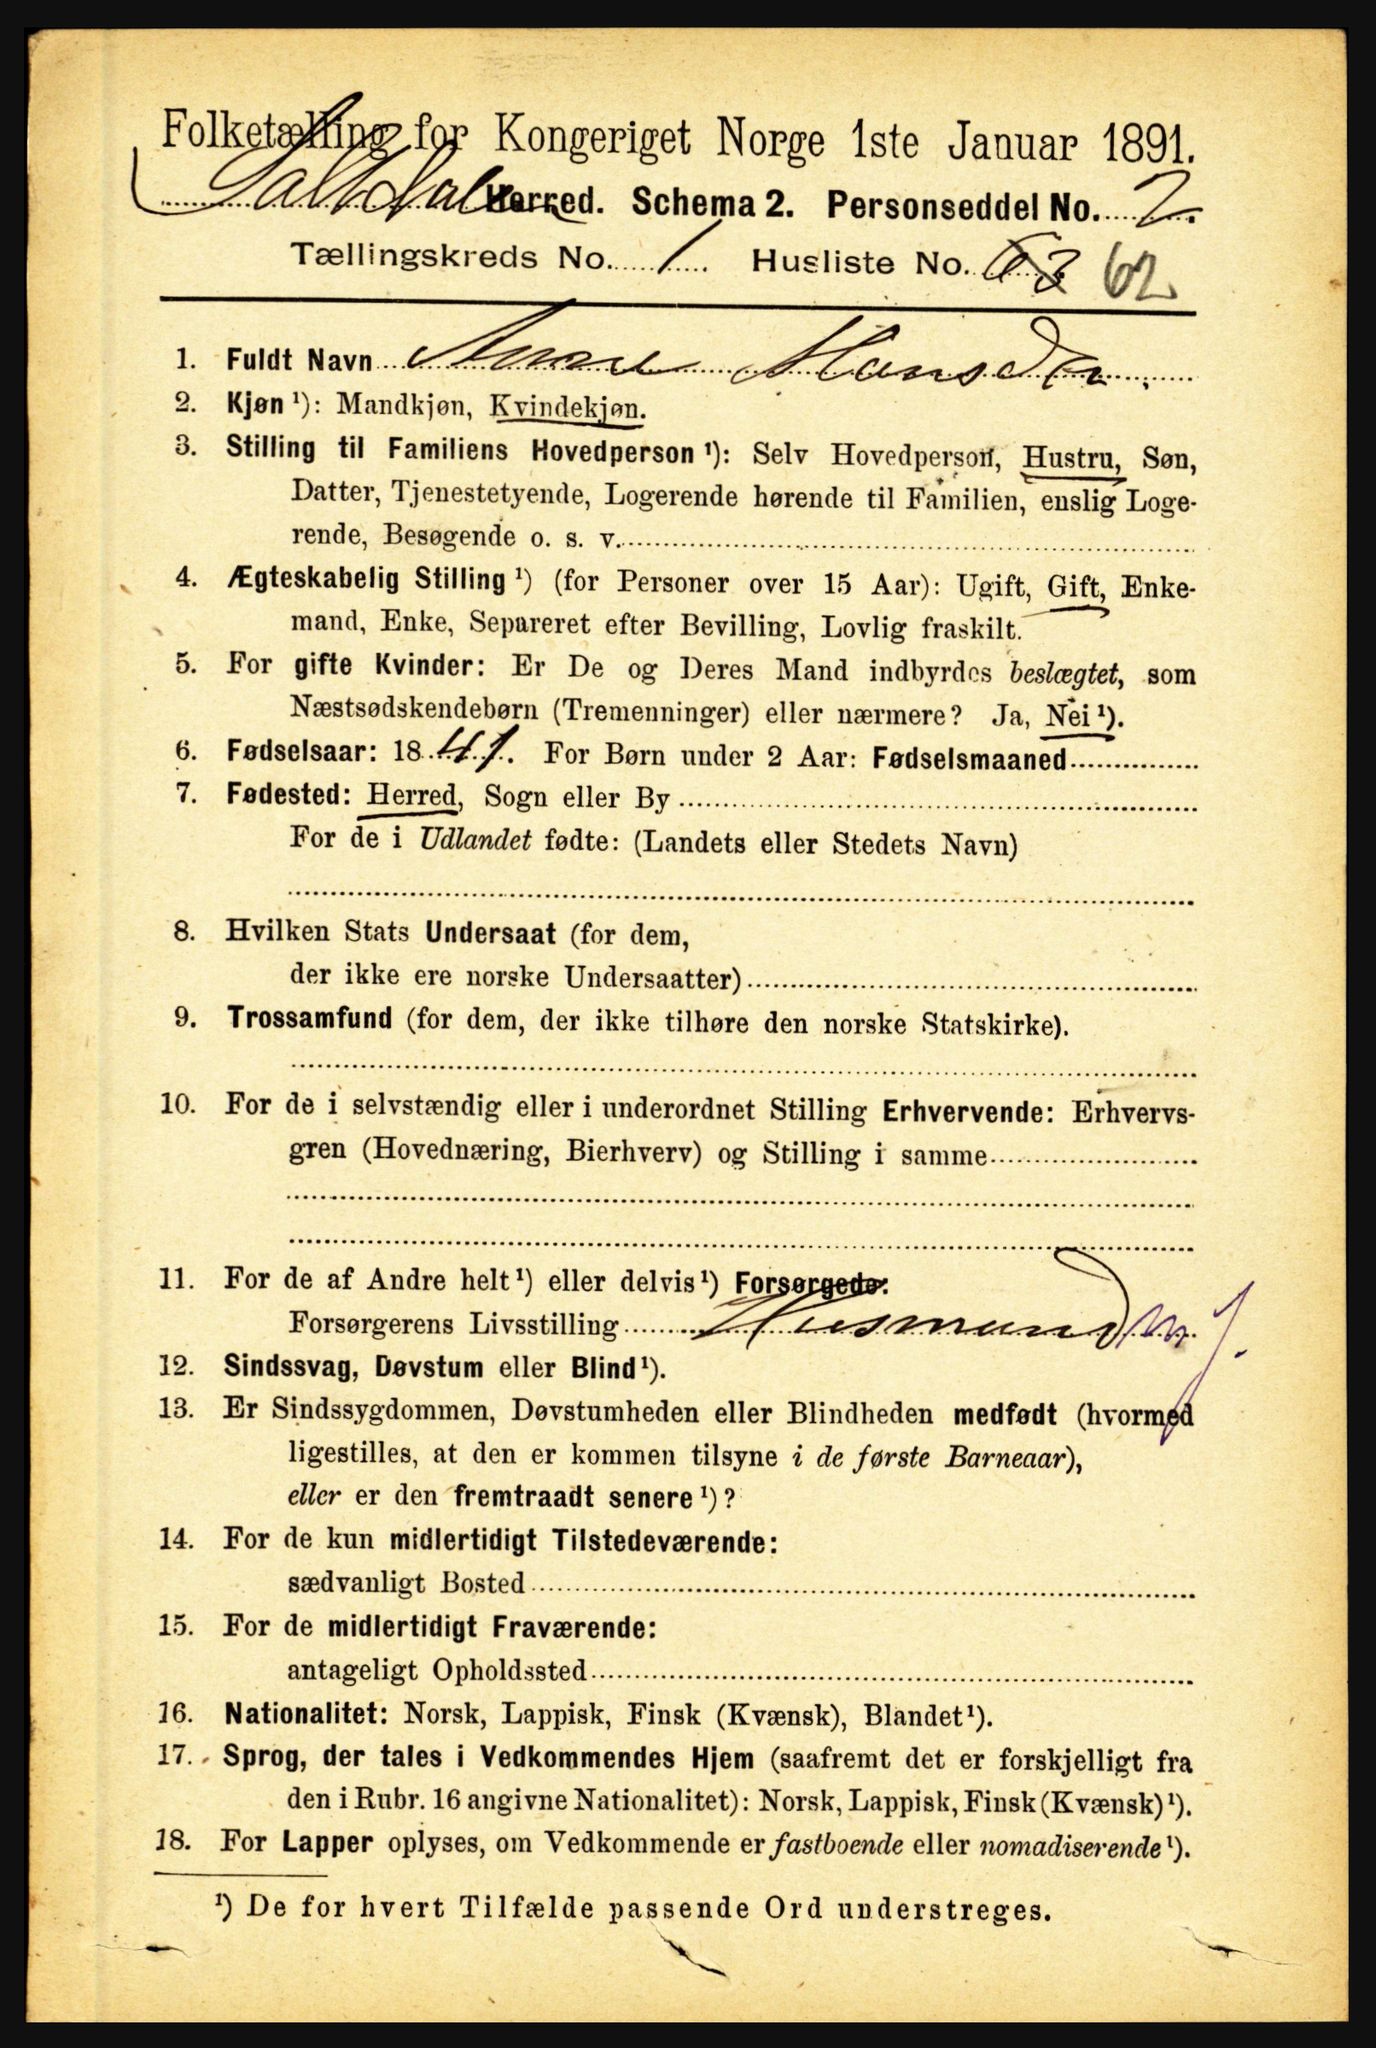 Folketælling for Kongeriget Norge 1ste Januar 1891.
Saltdalen Herred. Schema 2. Personseddel No. 2.
Tællingskreds No. 1 Husliste No. 63 62
1. Fuldt Navn Anne Hansdtr.
2. Kjøn ¹): Mandkjøn, Kvindekjøn.
3. Stilling til Familiens Hovedperson ¹): Selv Hovedperson, Hustru, Søn,
Datter, Tjenestetyende, Logerende hørende til Familien, enslig Loge-
rende, Besøgende o. s. v.
4. Ægteskabelig Stilling ¹) (for Personer over 15 Aar): Ugift, Gift, Enke-
mand, Enke, Separeret efter Bevilling, Lovlig fraskilt.
5. For gifte Kvinder: Er De og Deres Mand indbyrdes beslægtet, som
Næstsødskendebørn (Tremenninger) eller nærmere? Ja, Nei ¹).
6. Fødselsaar: 1841. For Børn under 2 Aar: Fødselsmaaned
7. Fødested: Herred, Sogn eller By
For de i Udlandet fødte: (Landets eller Stedets Navn)
8. Hvilken Stats Undersaat (for dem,
der ikke ere norske Undersaatter)
9. Trossamfund (for dem, der ikke tilhøre den norske Statskirke).
10. For de i selvstændig eller i underordnet Stilling Erhvervende: Erhvervs-
gren (Hovednæring, Bierhverv) og Stilling i samme
11. For de af Andre helt ¹) eller delvis ¹) Forsørgede:
Forsørgerens Livsstilling Husmand m. J.
12. Sindssvag, Døvstum eller Blind ¹).
13. Er Sindssygdommen, Døvstumheden eller Blindheden medfødt (hvormed
ligestilles, at den er kommen tilsyne i de første Barneaar),
eller er den fremtraadt senere ¹)?
14. For de kun midlertidigt Tilstedeværende:
sædvanligt Bosted
15. For de midlertidigt Fraværende:
antageligt Opholdssted
16. Nationalitet: Norsk, Lappisk, Finsk (Kvænsk), Blandet ¹).
17. Sprog, der tales i Vedkommendes Hjem (saafremt det er forskjelligt fra
den i Rubr. 16 angivne Nationalitet): Norsk, Lappisk, Finsk (Kvænsk) ¹).
18. For Lapper oplyses, om Vedkommende er fastboende eller nomadiserende ¹).
¹) De for hvert Tilfælde passende Ord understreges.